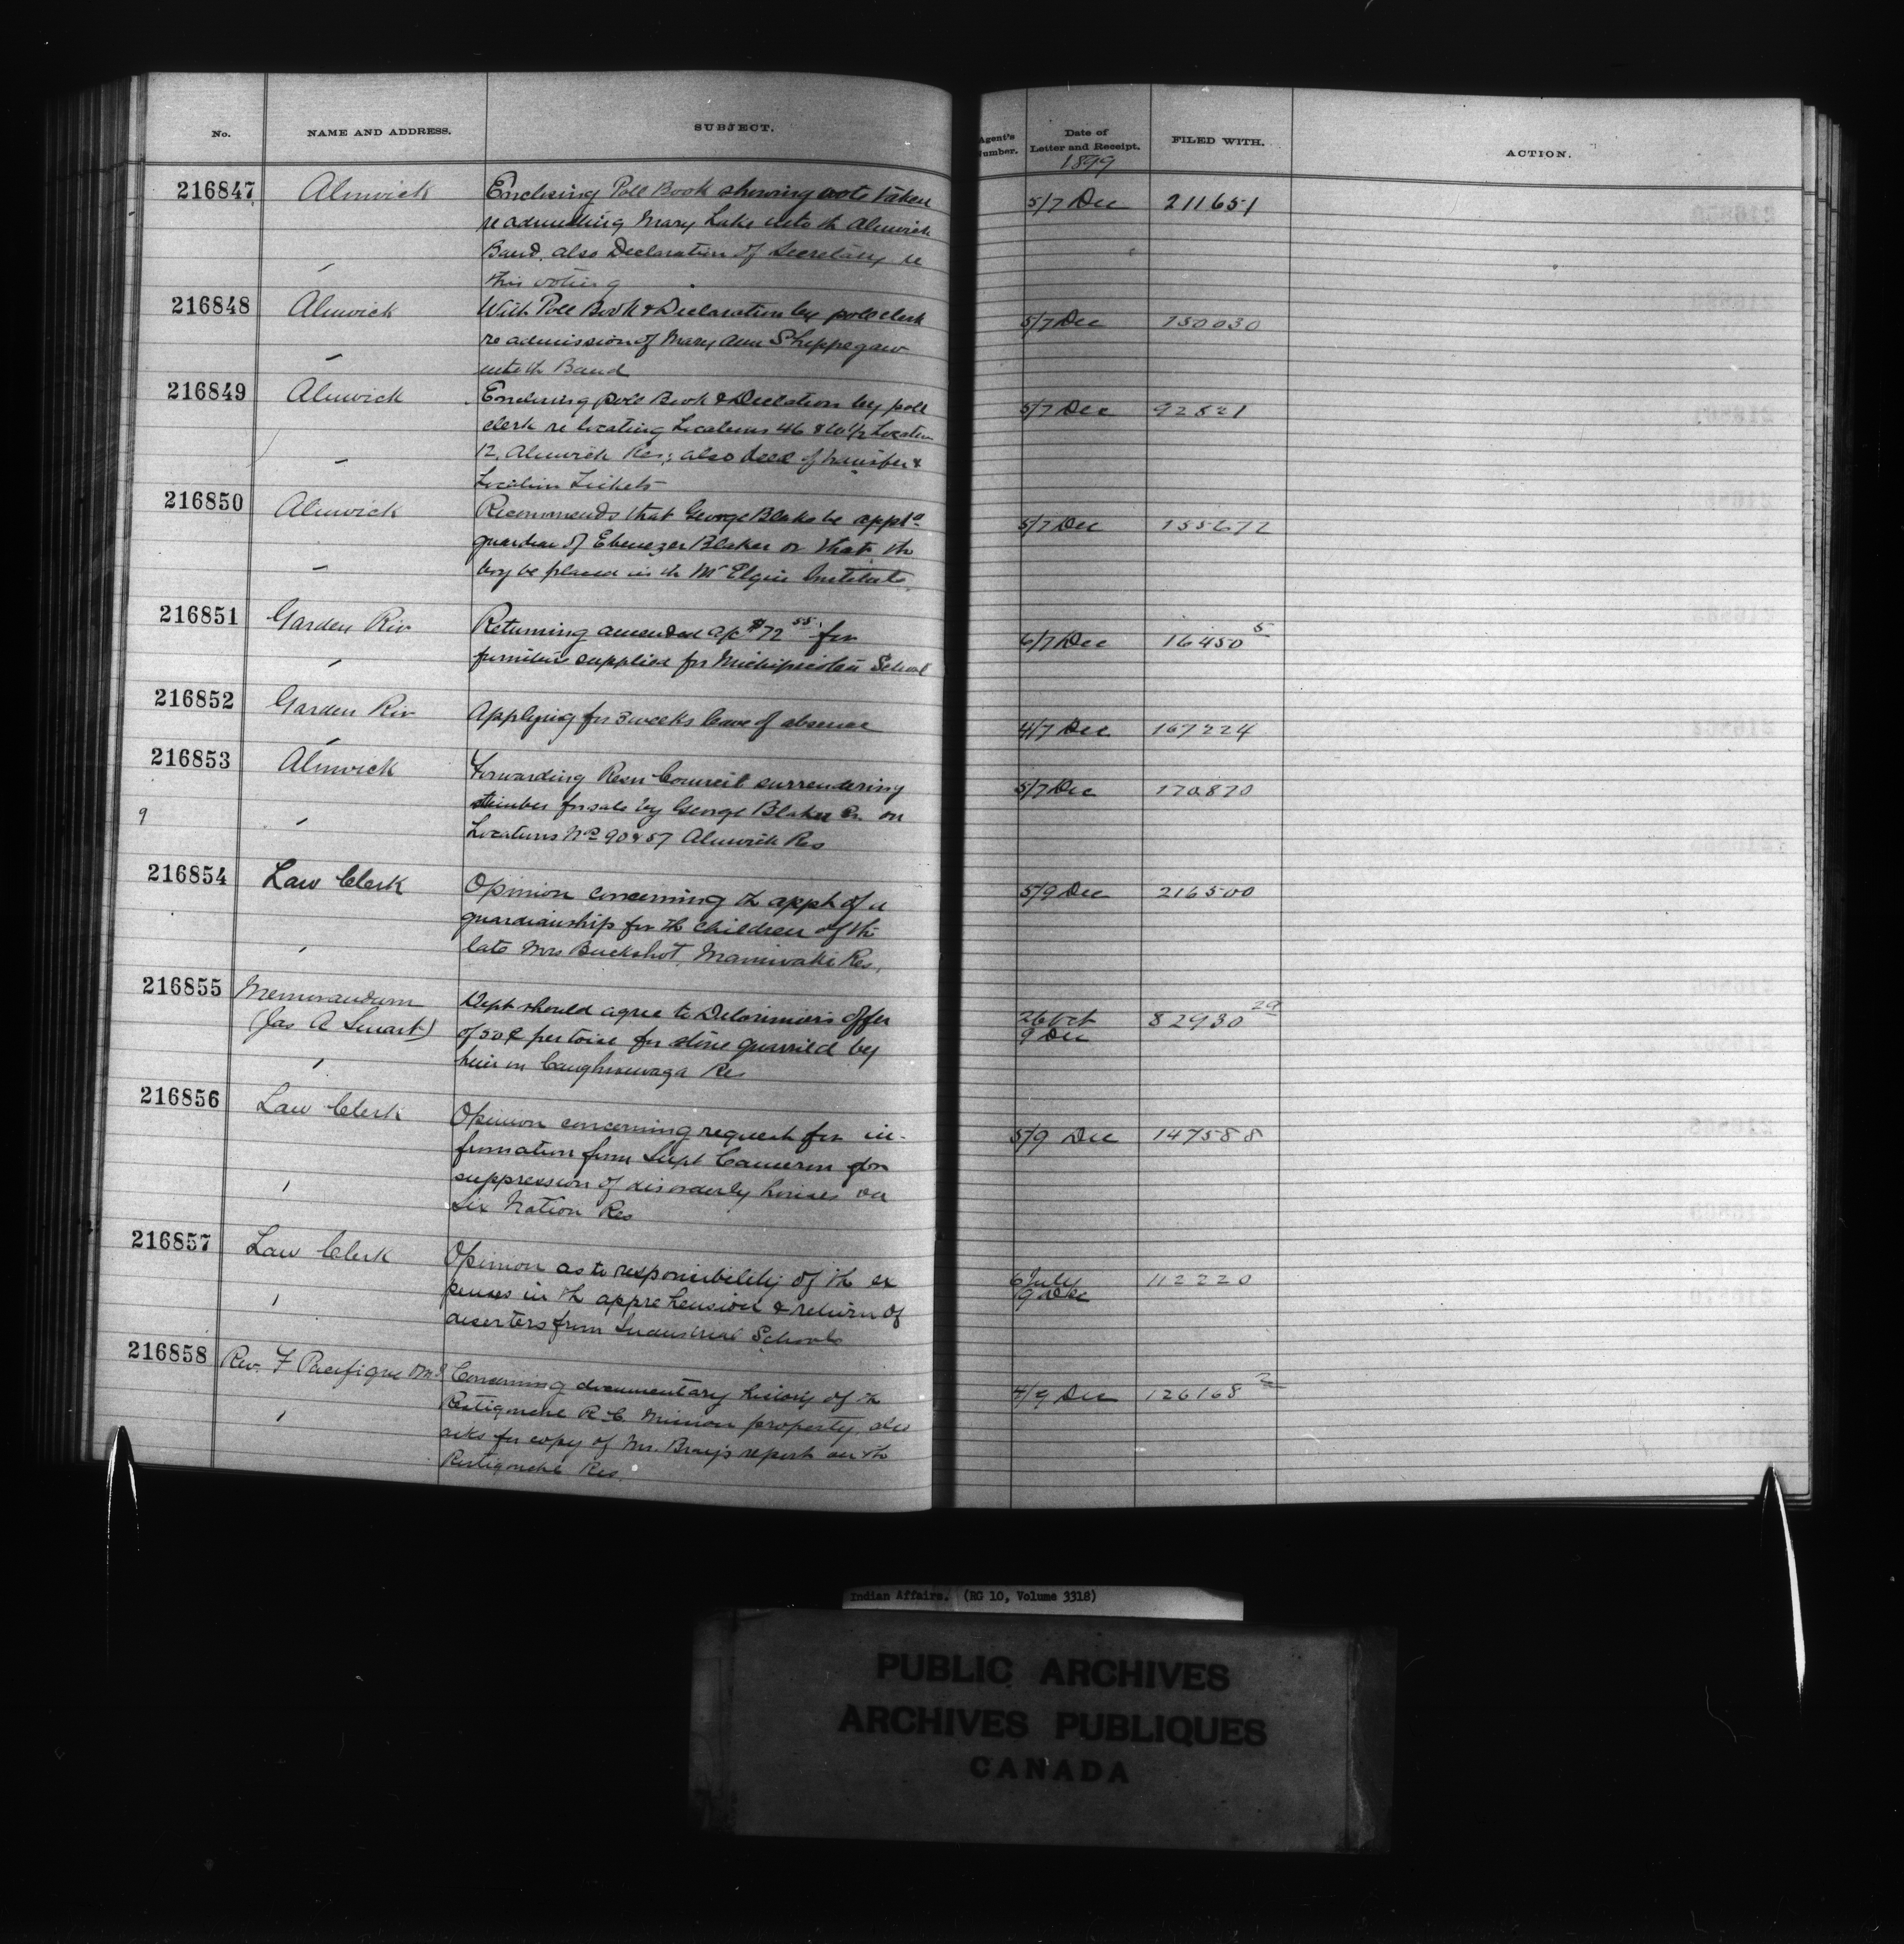 No. NAME AND ADDRESS. SUBJECT. Agent's Number. Date of Letter and Receipt. FILED WITH. ACTION.
1899
216847 Alnwick Enclosing Poll Book showing vote taken 5/7 Dec 211651
re admitting Mary Lake into th Alnwick
Band. also Declaration of Secretary re
this voting
216848 Alnwick With Poll Book & Declaration by poll clerk 5/7 Dec 150030
re admission of Mary Ann Sheppegaw
into th Band
216849 Alnwick Enclosing poll Book & Decletion by poll 5/7 Dec 92821
clerk re locating Locations 46 & 1/2 Location
12, Alnwick Res; also deed of transfer &
Location Tickets
216850 Alnwick Recommends that George Blake be apptd 5/7 Dec 155672
guardian of Ebenezer Blaker or that th
boy be placed in th Mt Elgin Institute
216851 Garden Riv Returning amended a/c $72 55 for 6/7 Dec 16450 5
furniture supplied for Michipicoten School
216852 Garden Riv Applying for 3 weeks leave of absence 4/7 Dec 167224
216853 Alnwick Forwarding Resn Council surrendering 5/7 Dec 170870
9 timber for sale by George Blaker Sr. on
Locations No 90 & 57 Alnwick Res
216854 Law Clerk Opinion concerning th appt of a 5/9 Dec 216500
guardianship for th children of th
late Mrs Buckshot, Maniwaki Res.
216855 Memorandum Dept should agree to Delorimier's offer 26 Oct 82930 29
(Jas A Smart) of 50¢ per toise for stone quarried by 9 Dec
him on Caughnawaga Res
216856 Law Clerk Opinion concerning request for in- 5/9 Dec 147588
formation from Supt Cameron for
suppression of disorderly houses on
Six Nation Res
216857 Law Clerk Opinion as to responsibility of th ex 6 July 112220
penses in th apprehension & return of 9 Dec
deserters from Industrial Schools
216858 Rev. F Pacifique Concerning documentary history of th 4/9 Dec 126168 2
Restigouche R.C. Mission property, also
asks for copy of Mr. Bray's report on th
Restigouche Res.
Indian Affairs. (RG 10, Volume 3318)
PUBLIC ARCHIVES
ARCHIVES PUBLIQUES
CANADA